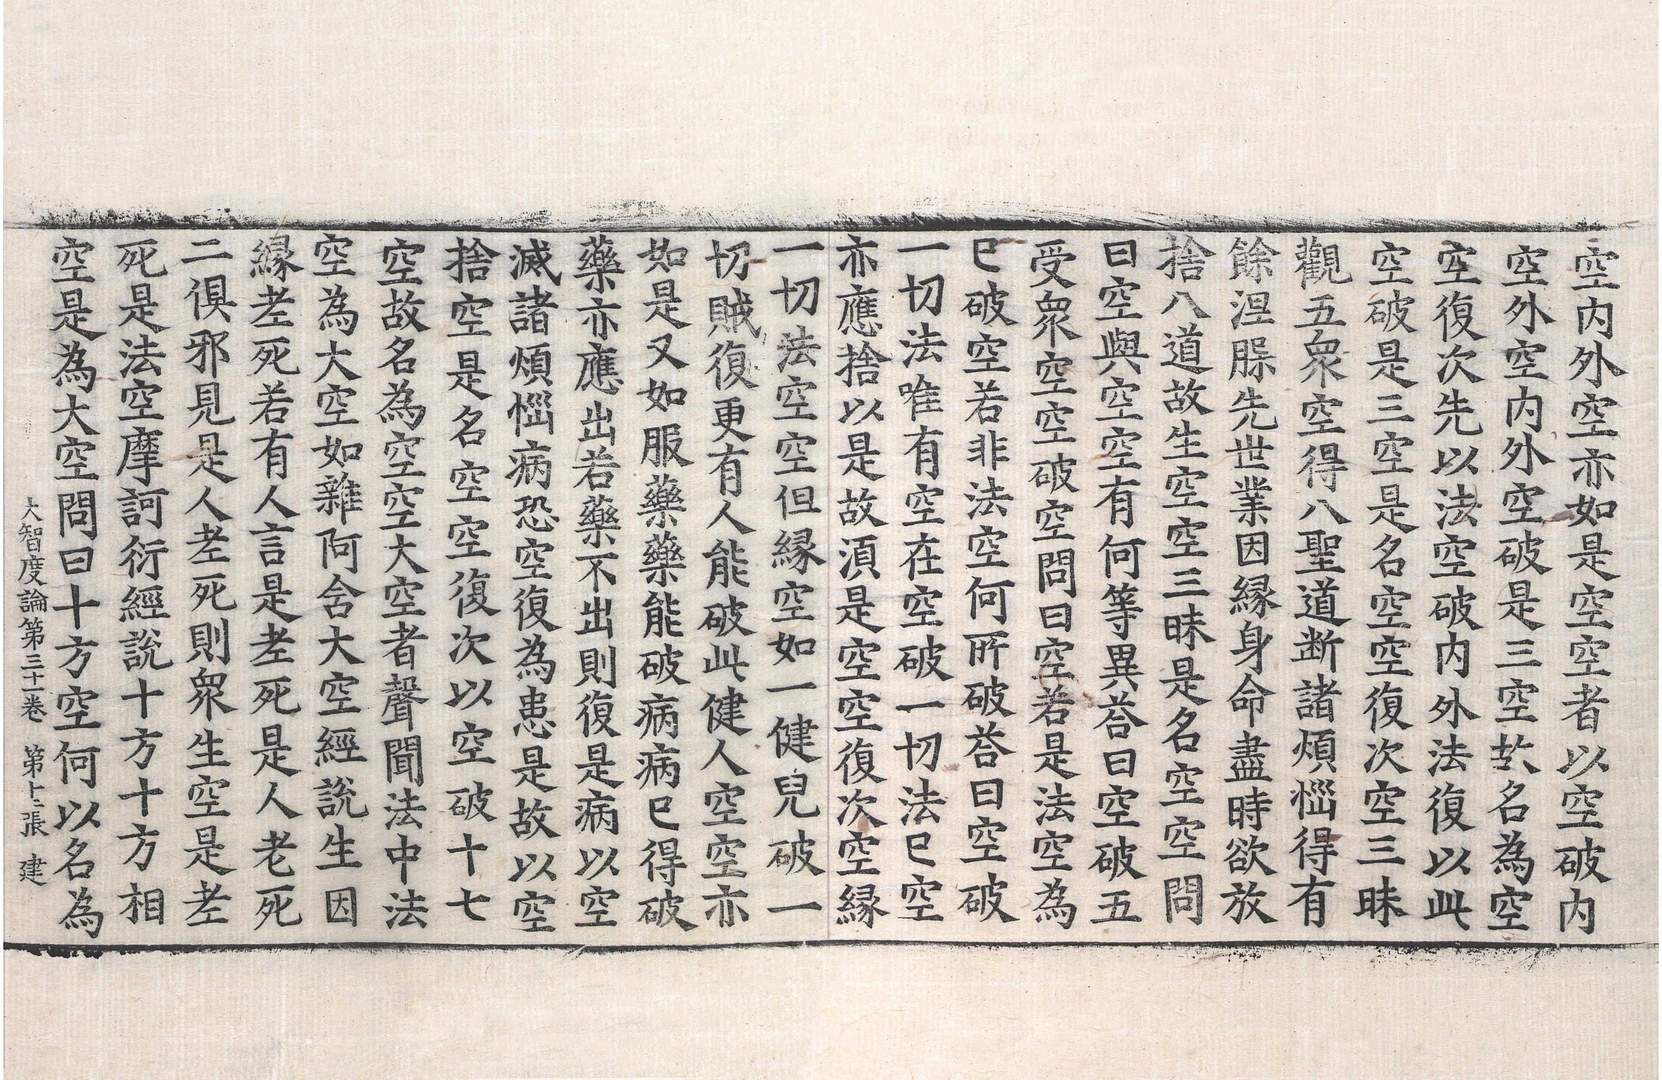 空内外空亦如是空空者以空破内
空外空内外空破是三空故名為空
空復次先以法空破内外法復以此
空破是三空是名空空復次空三昧
觀五衆空得八聖道断諸煩惱得有
餘涅槃先世業因縁身命盡時欲放
捨八道故生空空三昧是名空空問
曰空與空空有何等異荅曰空破五
受衆空空破空問曰空若是法空為
已破空若非法空何所破荅曰空破
一切法唯有空在空破一切法已空
亦應捨以是故湏是空空復次空縁
一切法空空但縁空如一健兒破一
切賊復更有人能破此健人空空亦
如是又如服藥藥能破病病已得破
藥亦應出若藥不出則復是病以空
滅諸煩惱病恐空復為患是故以空
捨空是名空空復次以空破十七
空故名為空空大空者聲聞法中法
空為大空如雜阿含大空經說生因
縁老死若有人言是老死是人老死
二俱邪見是人老死則衆生空是老
死是法空摩訶衍經說十方十方相
空是為大空問曰十方空何以名為
大智度論第三十一卷　第十二張　建